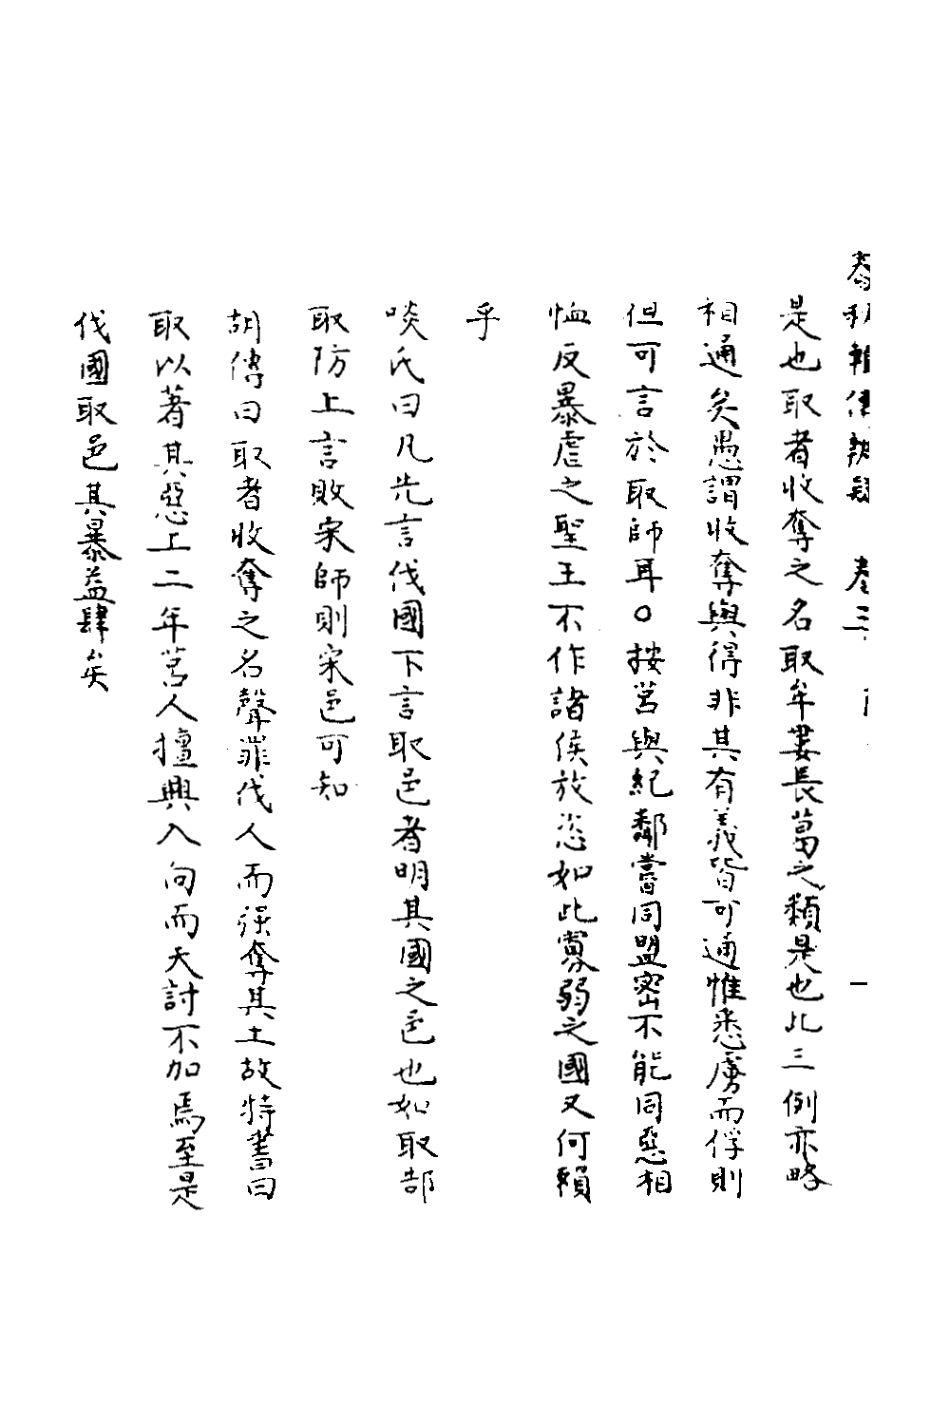 春秋輯傳辨疑 卷三 一
是也取者收奪之名取牟婁長葛之類是也此三例亦略
相通矣愚謂收奪與得非其有義皆可通惟悉虜而俘則
但可言於取師耳○按莒與紀鄰當同盟密不能同惡相
恤反暴虐之聖王不作諸侯放恣如此寡弱之國又何賴
乎
啖氏曰凡先言伐國下言取邑者明其國之邑也如取郜
取防上言敗宋師則宋邑可知
胡傳曰取者收奪之名聲罪伐人而强奪其土故特書曰
取以著其惡上二年莒人擅興入向而天討不加焉至是
伐國取邑其暴益肆矣